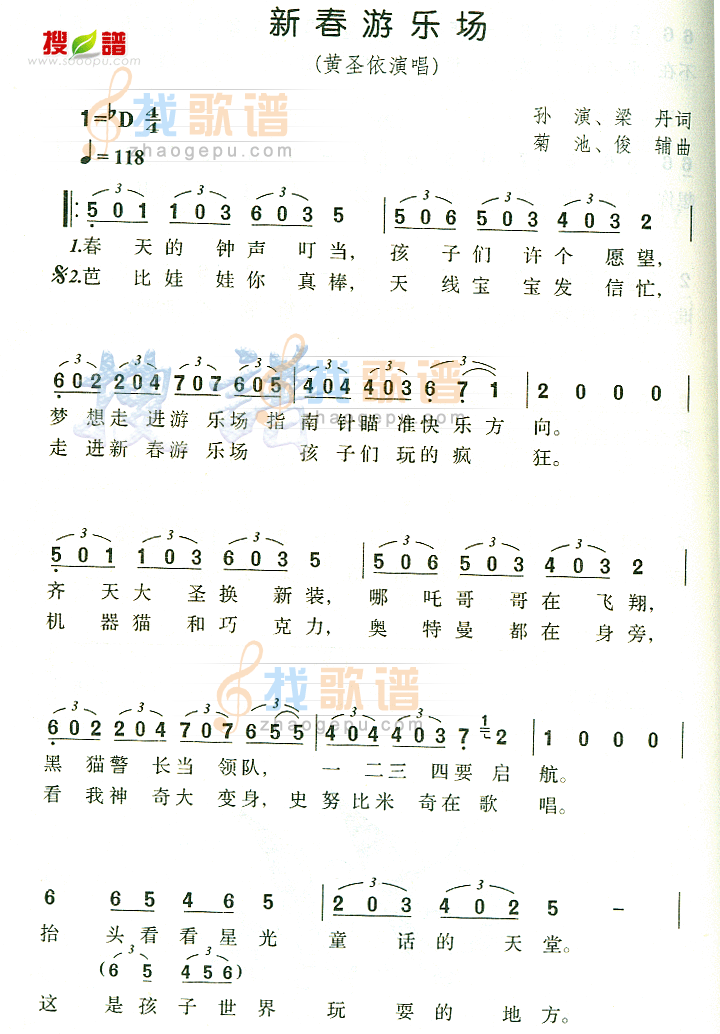 搜谱
www.sooopu.com
新春游乐场
(黄圣依演唱)
1=♭D 4/4
♩=118
孙 演、梁 丹词
菊 池、俊 辅曲
找歌谱
zhaogepu.com
5 0 1 1 0 3 6 0 3 5 | 5 0 6 5 0 3 4 0 3 2 |
1.春 天的 钟声 叮当, 孩 子们 许个 愿望,
𝄋2.芭 比娃 娃你 真棒, 天 线宝 宝发 信忙,
搜谱 找歌谱
6 0 2 2 0 4 7 0 7 6 0 5 | 4 0 4 4 0 3 6 7 1 | 2 0 0 0 |
zhaogepu.com
梦 想走 进游 乐场 指 南 针瞄 准快 乐方 向。
走 进新 春游 乐场 孩 子们 玩的 疯 狂。
5 0 1 1 0 3 6 0 3 5 | 5 0 6 5 0 3 4 0 3 2 |
齐 天大 圣换 新装, 哪 吒哥 哥在 飞翔,
机 器猫 和巧 克力, 奥 特曼 都在 身旁,
找歌谱
zhaogepu.com
6 0 2 2 0 4 7 0 7 6 5 5 | 4 0 4 4 0 3 7 1 2 | 1 0 0 0 |
黑 猫警 长当 领队, 一 二三 四要 启 航。
看 我神 奇大 变身, 史 努比 米 奇在 歌 唱。
6 6 5 4 6 5 | 2 0 3 4 0 2 5 – |
抬 头看看星光 童 话的 天堂。
(6 5 4 5 6)
这 是孩子世界 玩 耍的 地方。